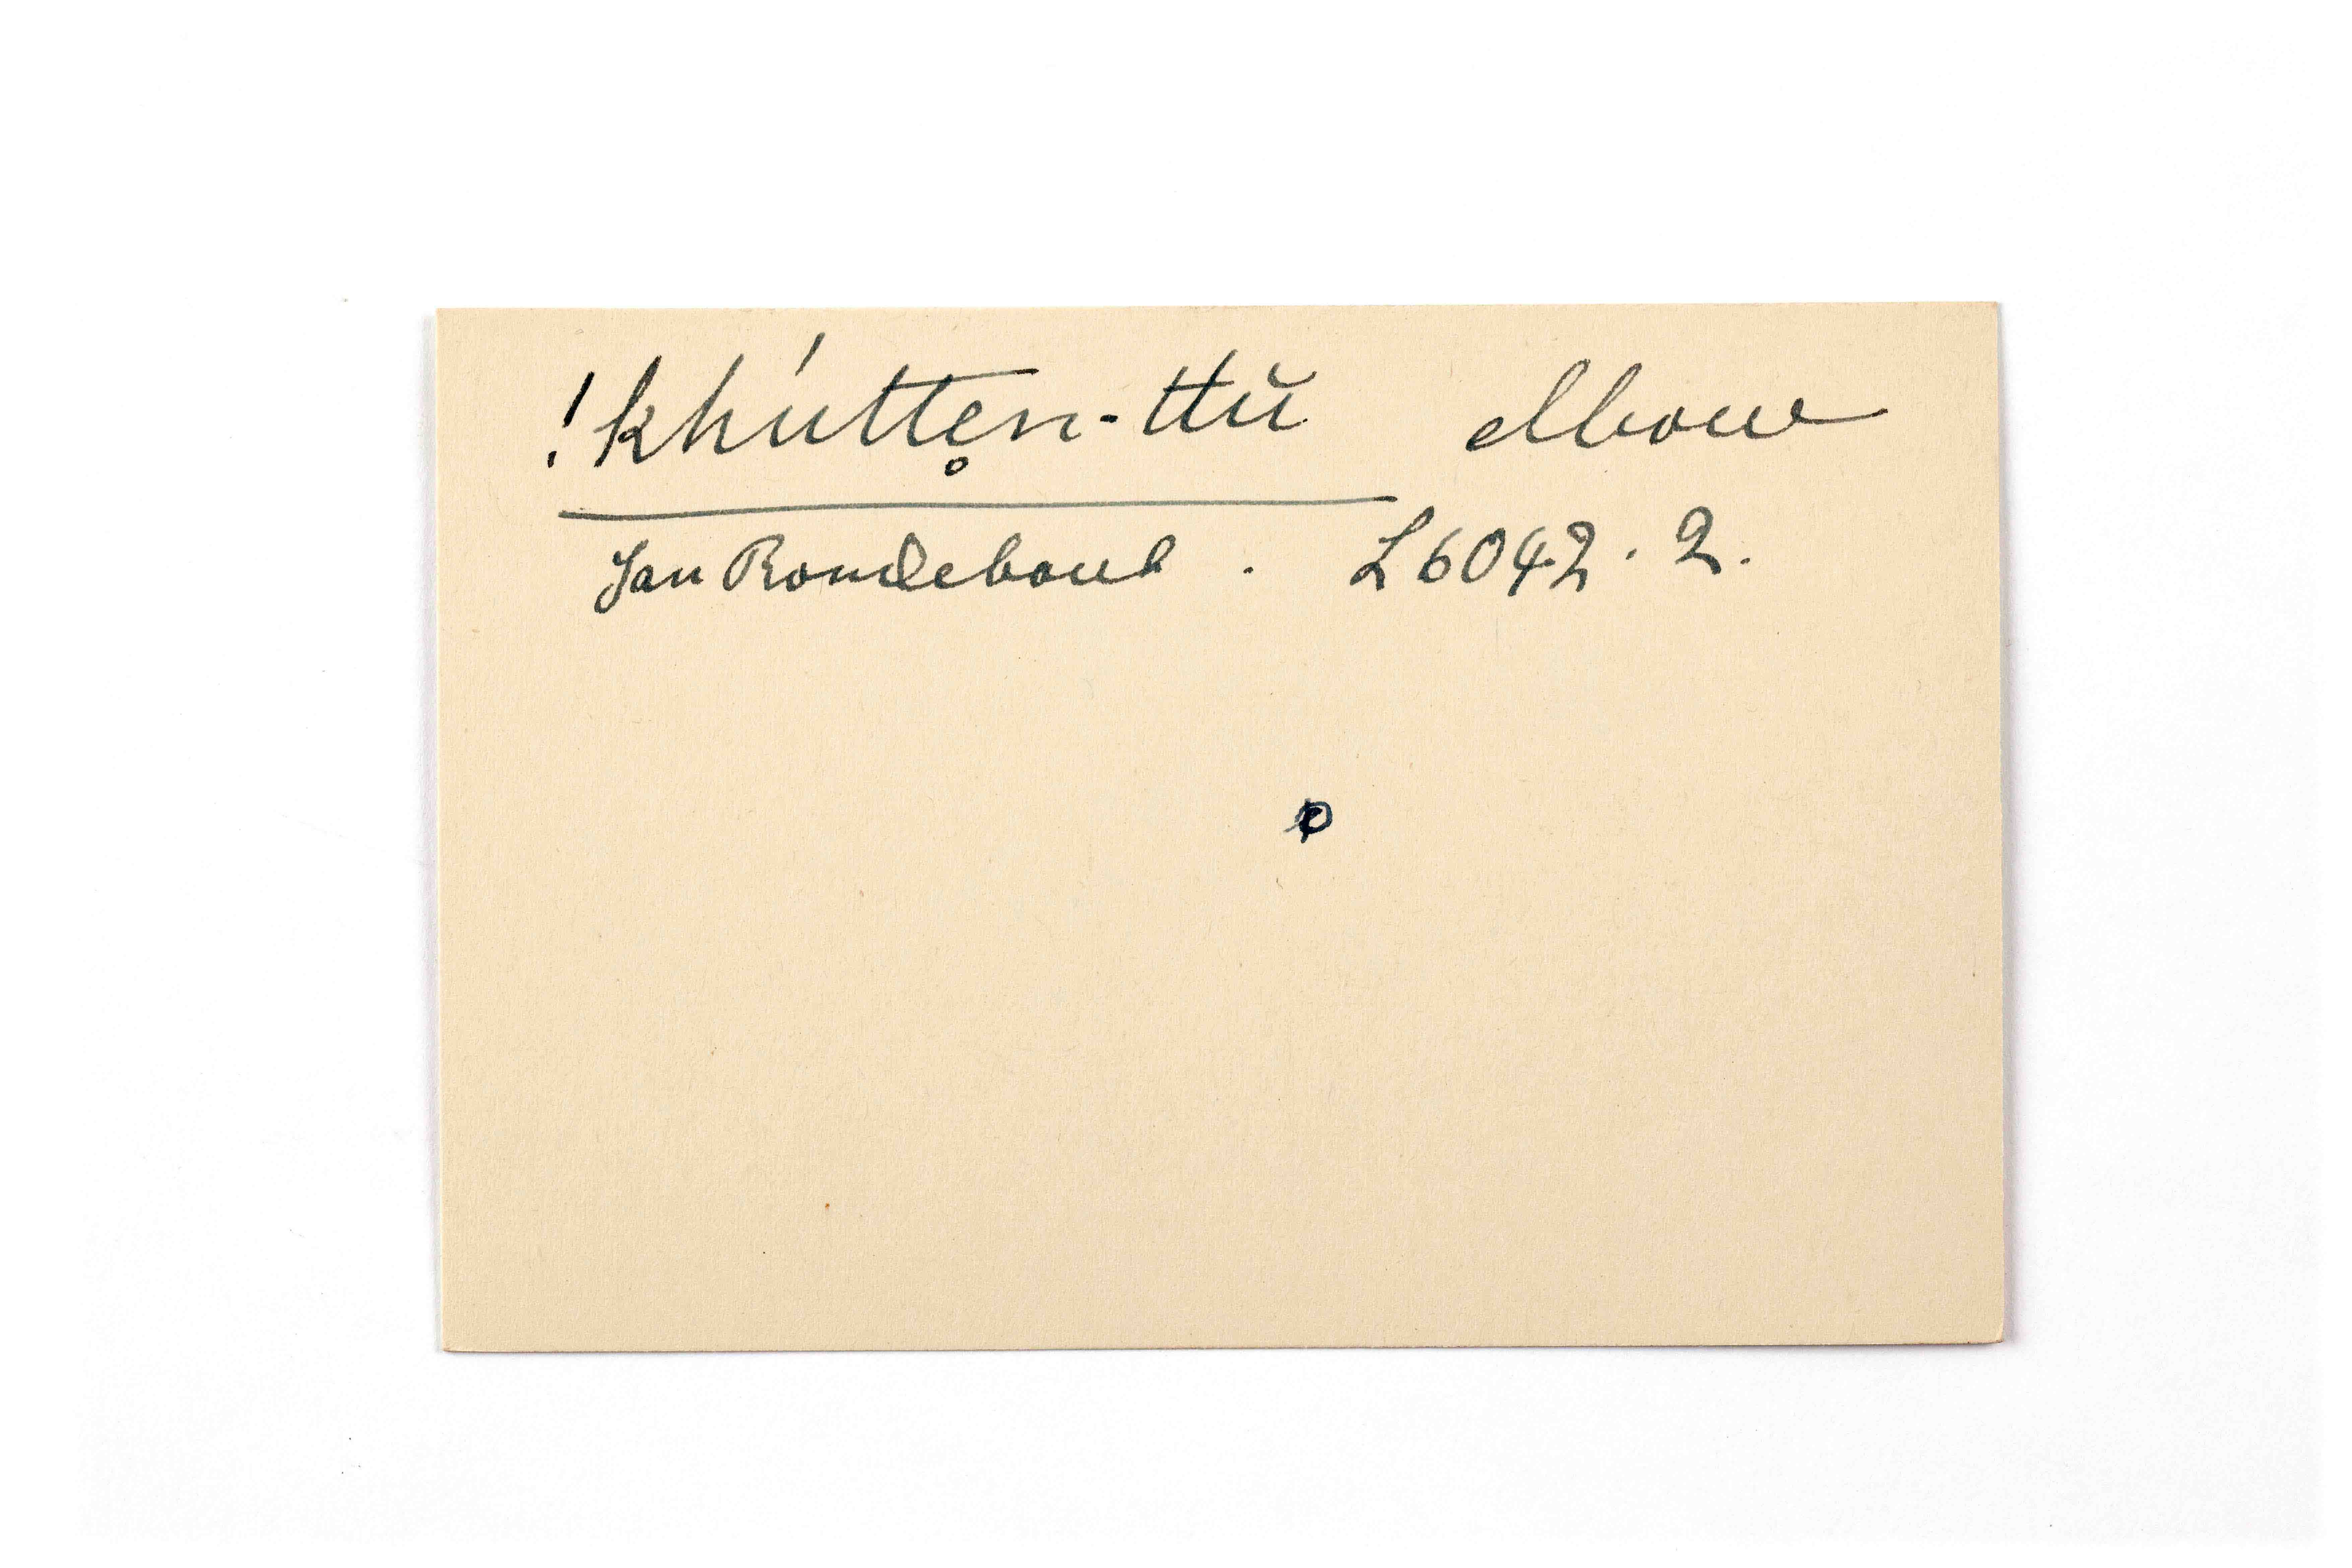 !khútte̥n-ttŭ elbow
Jan Rondebout . L6042.2.